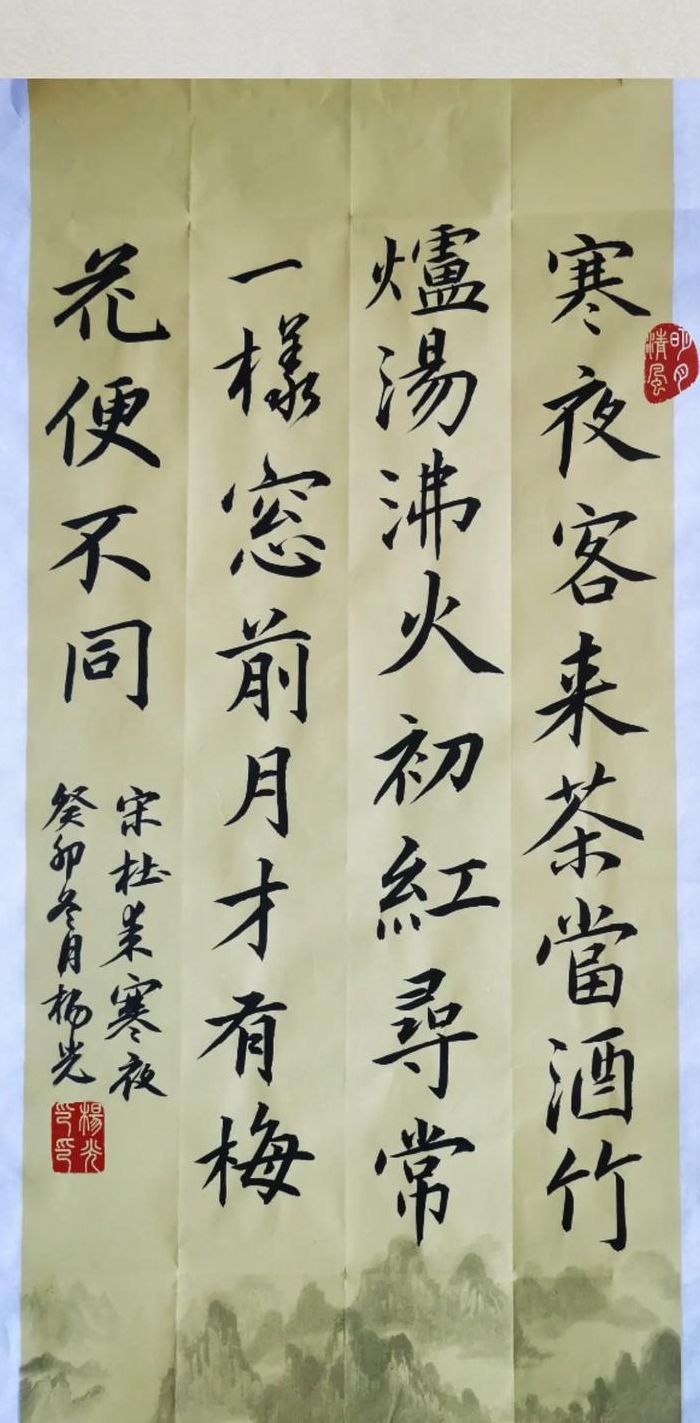 寒夜客来茶當酒竹
爐湯沸火初紅尋常
一樣窓前月才有梅
花便不同
宋杜耒寒夜
癸卯冬月楊光
明月清風
楊光之印